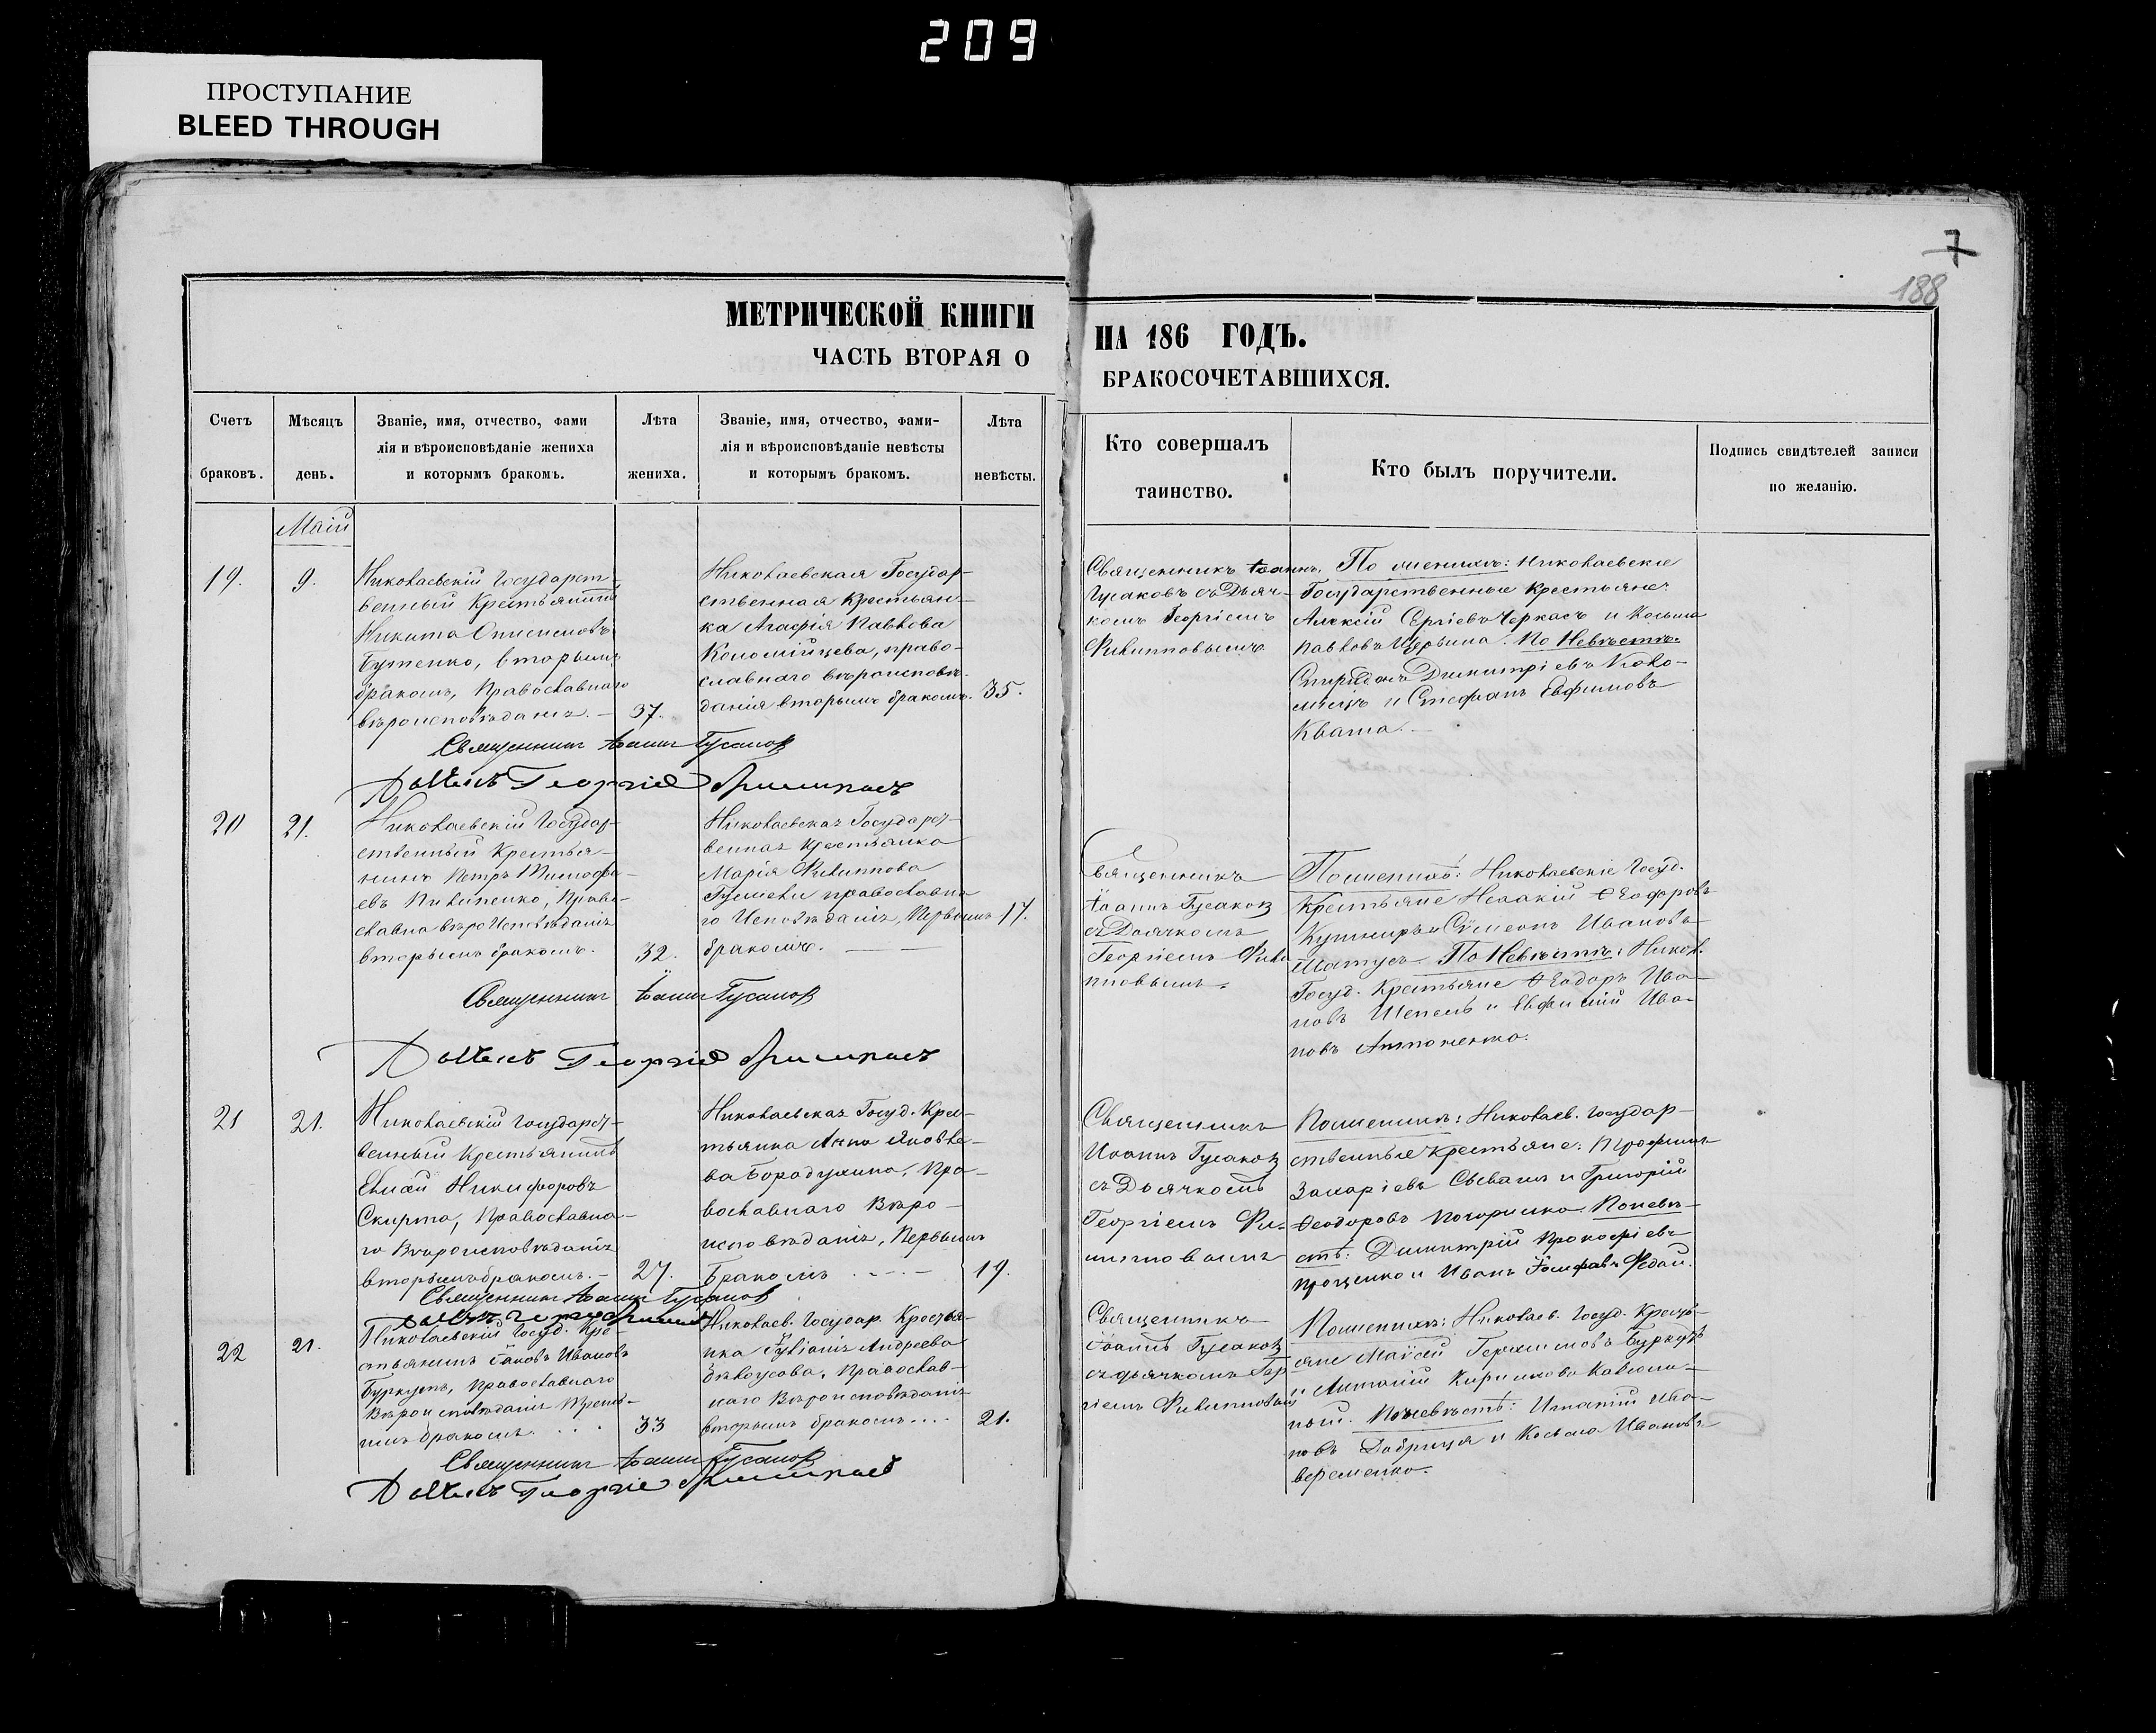 209
ПРОСТУПАНИЕ
BLEED THROUGH
7
188
МЕТРИЧЕСКОЙ КНИГИ
ЧАСТЬ ВТОРАЯ О
НА 186 ГОДЪ.
БРАКОСОЧЕТАВШИХСЯ.
Счетъ
браковъ.
Мѣсяцъ
день.
Званіе, имя, отчество, фами
лія и вѣроисповѣданіе жениха
и которымъ бракомъ.
Лѣта
жениха.
Званіе, имя, отчество, фами-
лія и вѣроисповѣданіе невѣсты
и которымъ бракомъ.
Лѣта
невѣсты.
Кто совершалъ
таинство.
Кто былъ поручители.
Подпись свидѣтелей записи
по желанію.
Маій
19.
9.
Николаевскій Государст-
венный Крестьянинъ
Никита
Бутенко, вторымъ
бракомъ, Православнаго
вѣроисповѣданія. —
37.
Николаевская Государ-
ственная Крестьян-
ка Агафія Павлова
Коломійцева, право-
славнаго вѣроисповѣ-
данія вторымъ бракомъ.
35.
Священникъ Іоаннъ
Гусаковъ съ Дьяч-
комъ Георгіемъ
Филипповымъ
По женихѣ: Николаевскіе
Государственные Крестьяне:
Алексій Сергіевъ Черкасъ и Косьма
Павловъ Щербина. По Невѣстѣ:
Спиридонъ Димитріевъ Коло-
міецъ и Стефанъ Евфимовъ
Квата. —
Священникъ Іоаннъ Гусаковъ
Дьячекъ Георгій Филиповъ
20
21.
Николаевскій Государ-
ственный Крестья-
нинъ Петръ Тимофе-
евъ Пилипенко, Право-
славна вѣроИсповѣданія
вторымъ бракомъ.
32.
Николаевская Государст-
венная Крестьянка
Марія Филиппова
православна
го Исповѣданія, Первымъ
бракомъ. —
17.
Священникъ
Іоаннъ Гусаковъ
съ Дьячкомъ
Георгіемъ Фили
пповымъ.
По женихѣ: Николаевскіе Госуд.
Крестьяне Ѳеодоровъ
Кушниръ и Сѵмеонъ Ивановъ
Матусъ. По Невѣстѣ: Никол.
Госуд. Крестьяне Ѳеодоръ Ива-
новъ Шепель и Евфимій Ива-
новъ Антоненко.
Священникъ Іоаннъ Гусаковъ
Дьячекъ Георгій Филиповъ
21
21.
Николаевскій Государст-
венный Крестьянинъ
Никифоровъ
Скирта, Православна-
го Вѣроисповѣданія
вторымъ бракомъ. —
27.
Николаевская Госуд. Крес-
тьянка Анна Яковле-
ва, Пра-
вославнаго Вѣро-
исповѣданія, Первымъ
Бракомъ. —
19.
Священникъ
Иоаннъ Гусаковъ
съ Дьячкомъ
Георгіемъ Фи-
липповымъ
По женихѣ: Николаев. Государ-
ственные крестьяне: Трофимъ
Захаріевъ и Григорій
Ѳеодоровъ Погорилко. По невѣ-
стѣ: Димитрій Прокофіевъ
Проценко и Иванъ Іосифовъ Федай.
Священникъ Іоаннъ Гусаковъ
22
21.
Николаевскій Госуд. Кре-
стьянинъ Іаковъ Ивановъ
Буркутъ, Православнаго
Вѣроисповѣданія Треть-
имъ бракомъ. . . .
33
Николаев. Государ. Крестья-
нка Іуліанія Андреева
Бѣлоусова, Православ-
наго Вѣроисповѣданія
вторымъ бракомъ. . . .
21.
Священникъ
Іоаннъ Гусаковъ
съ дьячкомъ Геор
гіемъ Филипповымъ
По женихѣ: Николаев. Госуд. Кресть-
яне Маѵсей Герасимовъ Буркутъ
и Антоній Кириловъ
ный. По невѣстѣ: Игнатій Ива-
новъ Добрица и Косьма Ивановъ
Веременко.
Священникъ Іоаннъ Гусаковъ
Дьячекъ Георгій Филиповъ